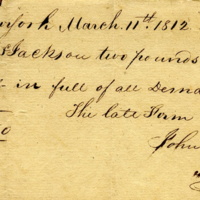 york March 11th. 1812
Jackson two pounds
in full of all Dema
The late Firm
John